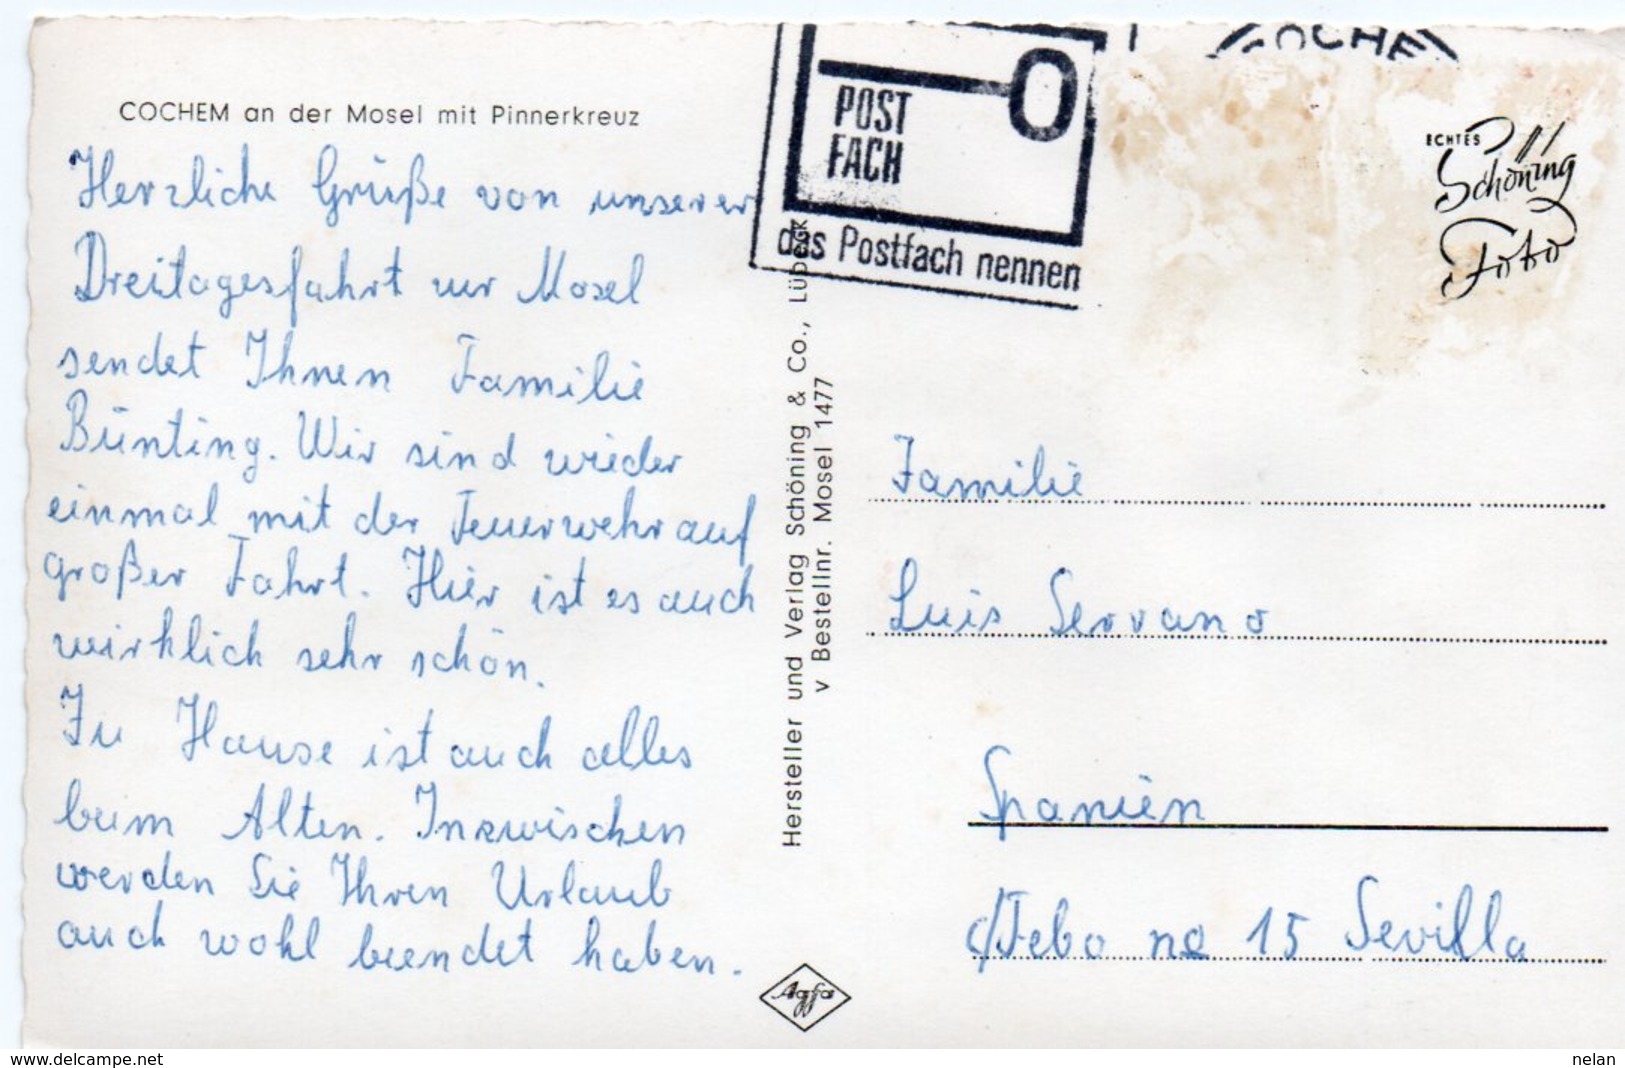 COCHEM an der Mosel mit Pinnerkreuz
Herzliche Grüße von unserer
Dreitagesfahrt zur Mosel
sendet Ihnen Familie
Bünting. Wir sind wieder
einmal mit der Feuerwehr auf
großer Fahrt. Hier ist es auch
wirklich sehr schön.
Zu Hause ist auch alles
beim Alten. Inzwischen
werden Sie Ihren Urlaub
auch wohl beendet haben.
Hersteller und Verlag Schöning & Co., Lübeck
v Bestellnr. Mosel 1477
Agfa
POST
FACH
das Postfach nennen
COCHE
ECHTES
Schöning
Foto
Familie
Luis Serrano
Spanien
c/Febo no 15 Sevilla
www.delcampe.net
nelan